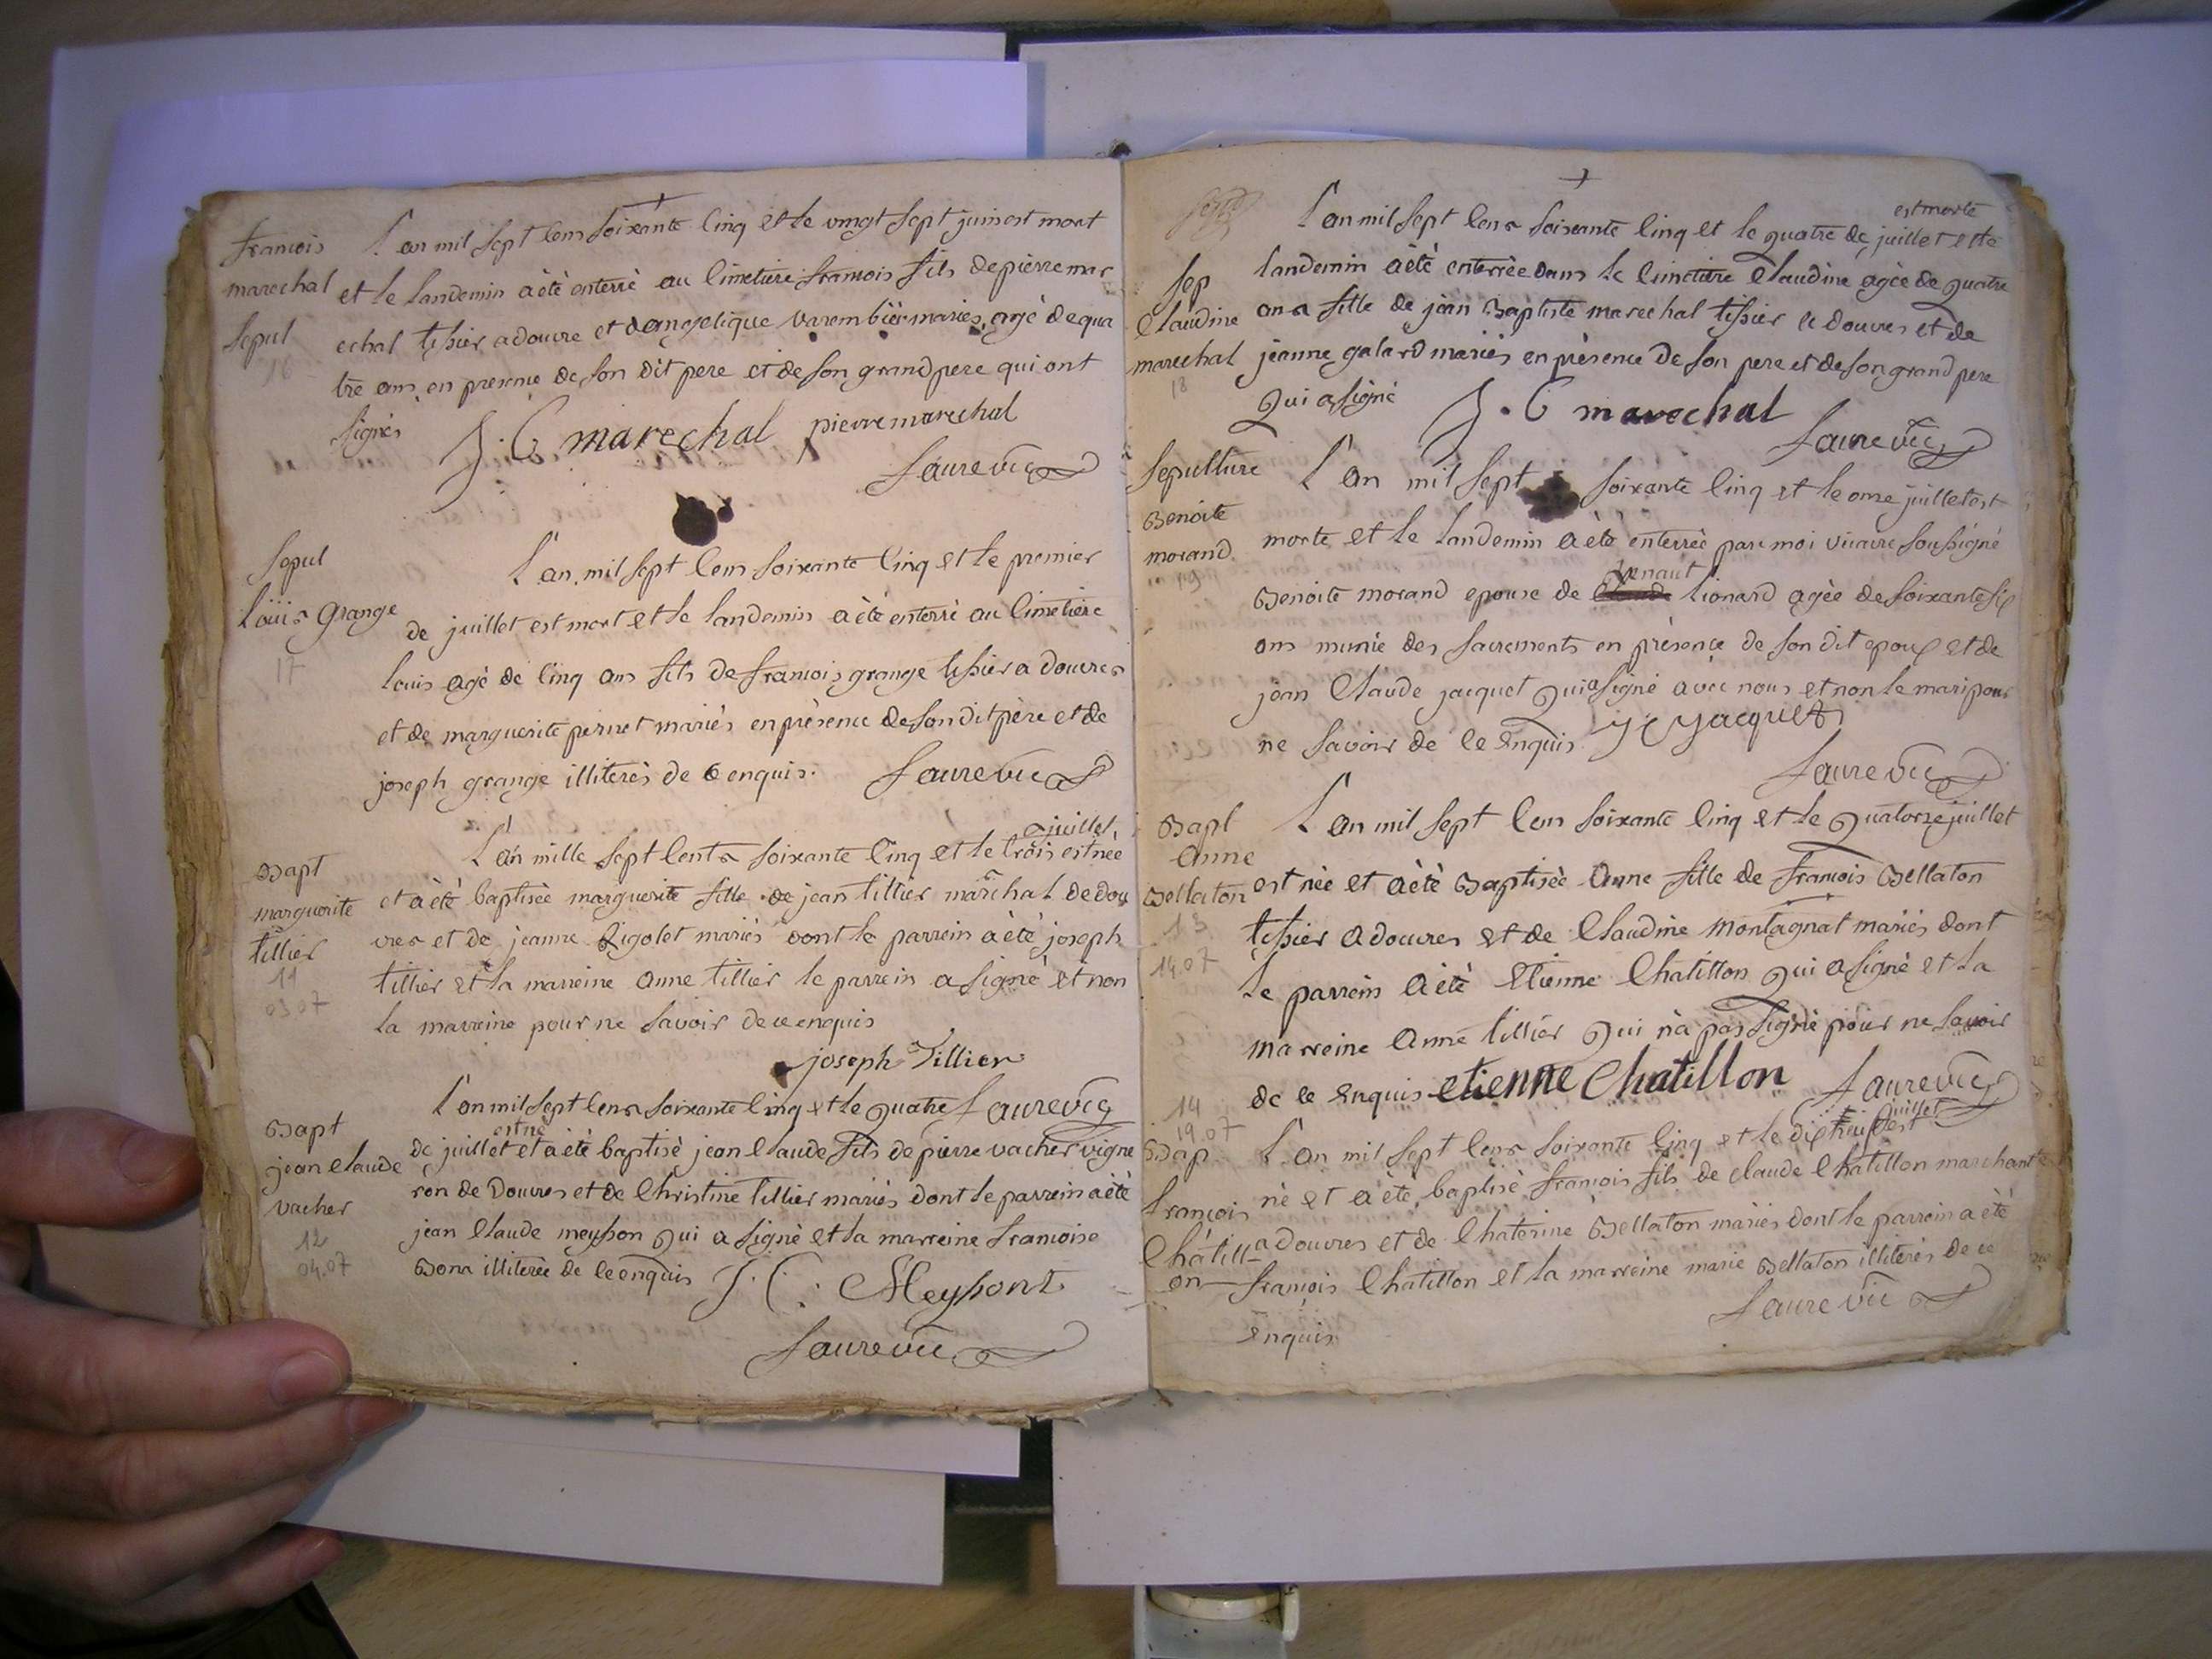 francois
marechal
sepul
16
L'an mil sept cens soixante cinq et le vingt sept juin est mort
et le landemin à été enterré au cimetiere francois fils de pierre mar
echal tissier a douvre et dangelique varembier mariés, agé de qua
tre ans, en presence de son dit pere et de son grand pere qui ont
signés
J. C marechal pierre marechal
faure vic
sepul
Loüis grange
17
L'an mil sept cens soixante cinq et le premier
de juillet est mort et le landemin a été enterré au cimetiere
louis agé de cinq ans fils de francois grange tissier a douvres
et de marguerite pernet mariés en présence de son dit père et de
joseph grange illiterés de ce enquis.
faure vic
Bapt
marguerite
tillier
11
03.07
juillet
L'an mille sept cents soixante cinq et le trois est née
et à été baptisée marguerite fille de jean tillier marchal de dou
vres et de jeanne Rigolet mariés dont le parrein à été joseph
tillier et la marreine anne tillier le parrein a signé et non
la marreine pour ne savoir de ce enquis
joseph Tillier
Bapt
jean claude
vacher
12
04.07
L'an mil sept cens soixante cinq et le quatre faure vic
est né
de juillet et à été baptisé jean claude fils de pierre vacher vigne
ron de Douvres et de Christine tillier mariés dont le parrein a été
jean claude meysson qui a signé et la marreine francoise
Bona illiterée de ce enquis
J. C. Meyssont
faure vic
sep
Claudine
marechal
18
est morte
L'an mil sept cens soixante cinq et le quatre de juillet et le
landemin à été enterrée dans le cimetiere Claudine agée de quatre
ans fille de jean Baptiste marechal tissier a douvres et de
jeanne galard mariés en présence de son pere et de son grand pere
Qui a signé
J. C marechal
faure vic
sepulture
Benoite
morand
19
L'an mil sept soixante cinq et le onze juillet est
morte et le landemin à été enterrée par moi vicaire soussigné
Benoite morand epouse de Lionard agée de soixante six
ans munie des sacrements en présence de son dit epoux et de
jean Claude jacquet qui a signé avec nous et non le mari pour
ne savoir de ce enquis
jc jacquet
faure vic
Bapt
Anne
Bellaton
13
14.07
L'an mil sept cens soixante cinq et le quatorze juillet
est née et à été Baptisée Anne fille de francois Bellaton
tissier a douvres et de Claudine montagnat mariés dont
le parrein à été Etienne Chatillon qui a signé et la
marreine Anne tillier qui n'a pas signé pour ne savoir
de ce enquis etienne Chatillon faure vic
14
19.07
Bap
francois
Châtill-
on
juillet
L'an mil sept cens soixante cinq et le dix neuf est
né et à été baptisé francois fils de claude Chatillon marchant
a douvres et de Chaterine Bellaton mariés dont le parrein a été
francois Chatillon et la marreine marie Bellaton illiterés de ce
enquis
faure vic